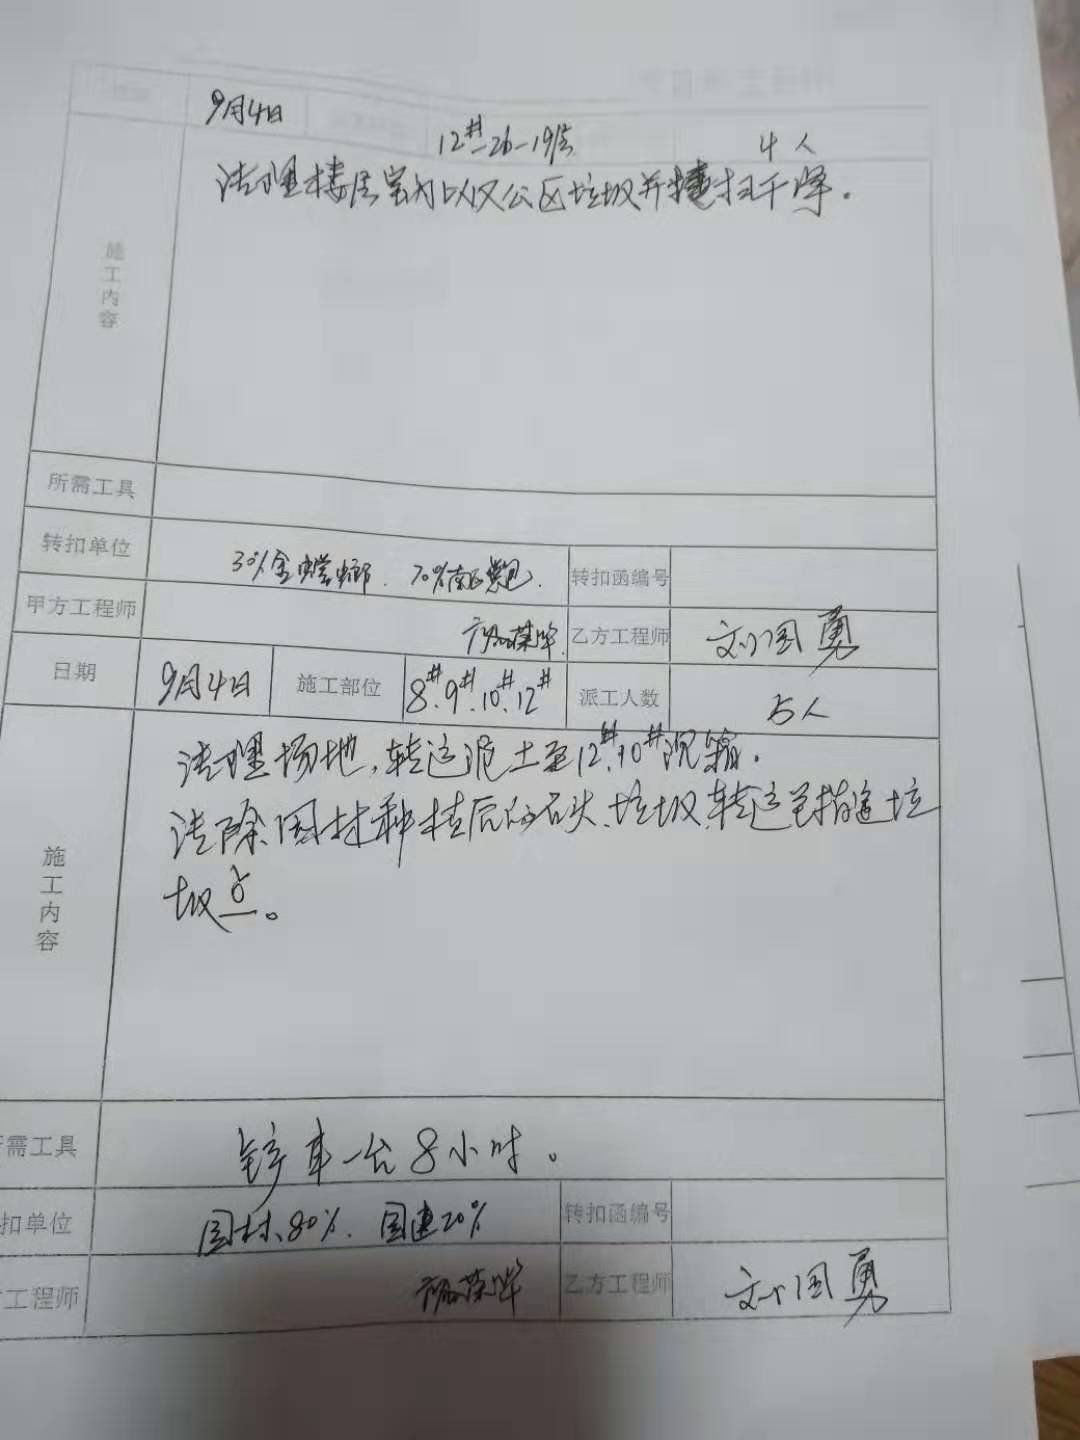 9月4日 12#-26-19层 4人
清理楼层室内以及公区垃圾并清扫干净。
施工内容
所需工具
转扣单位 30%金螳螂. 70%南 转扣函编号
甲方工程师 乙方工程师 刘国勇
日期 9月4日 施工部位 8#.9#.10#.12# 派工人数 5人
清理场地,转运泥土至12#.10#
清除园林种植后的石头、垃圾,转运至指定垃
圾点。
施工内容
需工具 铲车一台8小时。
扣单位 园林、80%. 国建20% 转扣函编号
工程师 乙方工程师 刘国勇